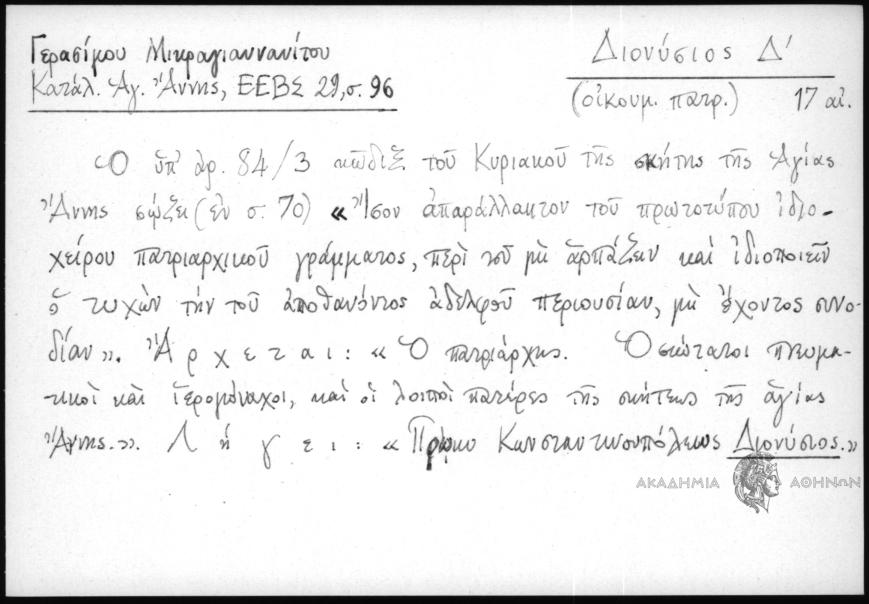 Γερασίμου Μικραγιαννανίτου
Κατάλ. Ἁγ. Ἄννης, ΕΕΒΣ 29, σ. 96
Διονύσιος Δ'
(οἰκουμ. πατρ.) 17 αἰ.
Ὁ ὑπ' ἀρ. 84/3 κῶδιξ τοῦ Κυριακοῦ τῆς σκήτης τῆς Ἁγίας
Ἄννης σῴζει (ἐν σ. 70) «Ἴσον ἀπαράλλακτον τοῦ πρωτοτύπου ἰδιο-
χείρου πατριαρχικοῦ γράμματος, περὶ τοῦ μὴ ἁρπάζειν καὶ ἰδιοποιεῖν
ὁ τυχὼν τὴν τοῦ ἀποθανόντος ἀδελφοῦ περιουσίαν, μὴ ἔχοντος συνο-
δίαν». Ἄρχεται: «Ὁ πατριάρχης. Ὁσιώτατοι πνευμα-
τικοὶ καὶ ἱερομόναχοι, καὶ οἱ λοιποὶ πατέρες τῆς σκήτεως τῆς ἁγίας
Ἄννης.». Λήγει: «Πρώην Κωνσταντινουπόλεως Διονύσιος.»
ΑΚΑΔΗΜΙΑ ΑΘΗΝΩΝ